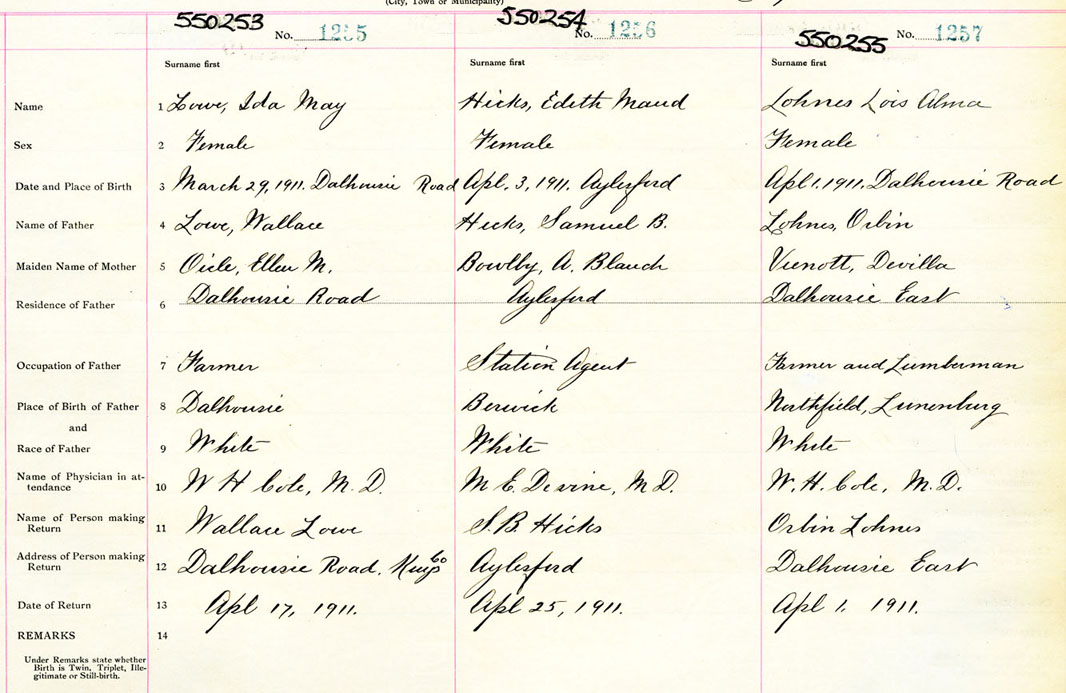 (City, Town or Municipality)
550253 No. 1255 550254 No. 1256 550255 No. 1257
Surname first Surname first Surname first
Name 1 Lowe, Ida May Hicks, Edith Maud Lohnes Lois Alma
Sex 2 Female Female Female
Date and Place of Birth 3 March 29, 1911. Dalhousie Road Apl. 3, 1911. Aylesford Apl 1. 1911. Dalhousie Road
Name of Father 4 Lowe, Wallace Hicks, Samuel B. Lohnes, Orbin
Maiden Name of Mother 5 Oicle, Ellen M. Bowlby, A. Blanch Vienott, Devilla
Residence of Father 6 Dalhousie Road Aylesford Dalhousie East
Occupation of Father 7 Farmer Station Agent Farmer and Lumberman
Place of Birth of Father 8 Dalhousie Berwick Northfield, Lunenburg
and
Race of Father 9 White White White
Name of Physician in at-
tendance 10 W H Cole, M.D. M E. Devine, M D. W. H. Cole, M.D.
Name of Person making
Return 11 Wallace Lowe S. B. Hicks Orbin Lohnes
Address of Person making
Return 12 Dalhousie Road. Kings Co Aylesford Dalhousie East
Date of Return 13 Apl 17, 1911. Apl 25, 1911. Apl 1. 1911.
REMARKS 14
Under Remarks state whether
Birth is Twin, Triplet, Ille-
gitimate or Still-birth.